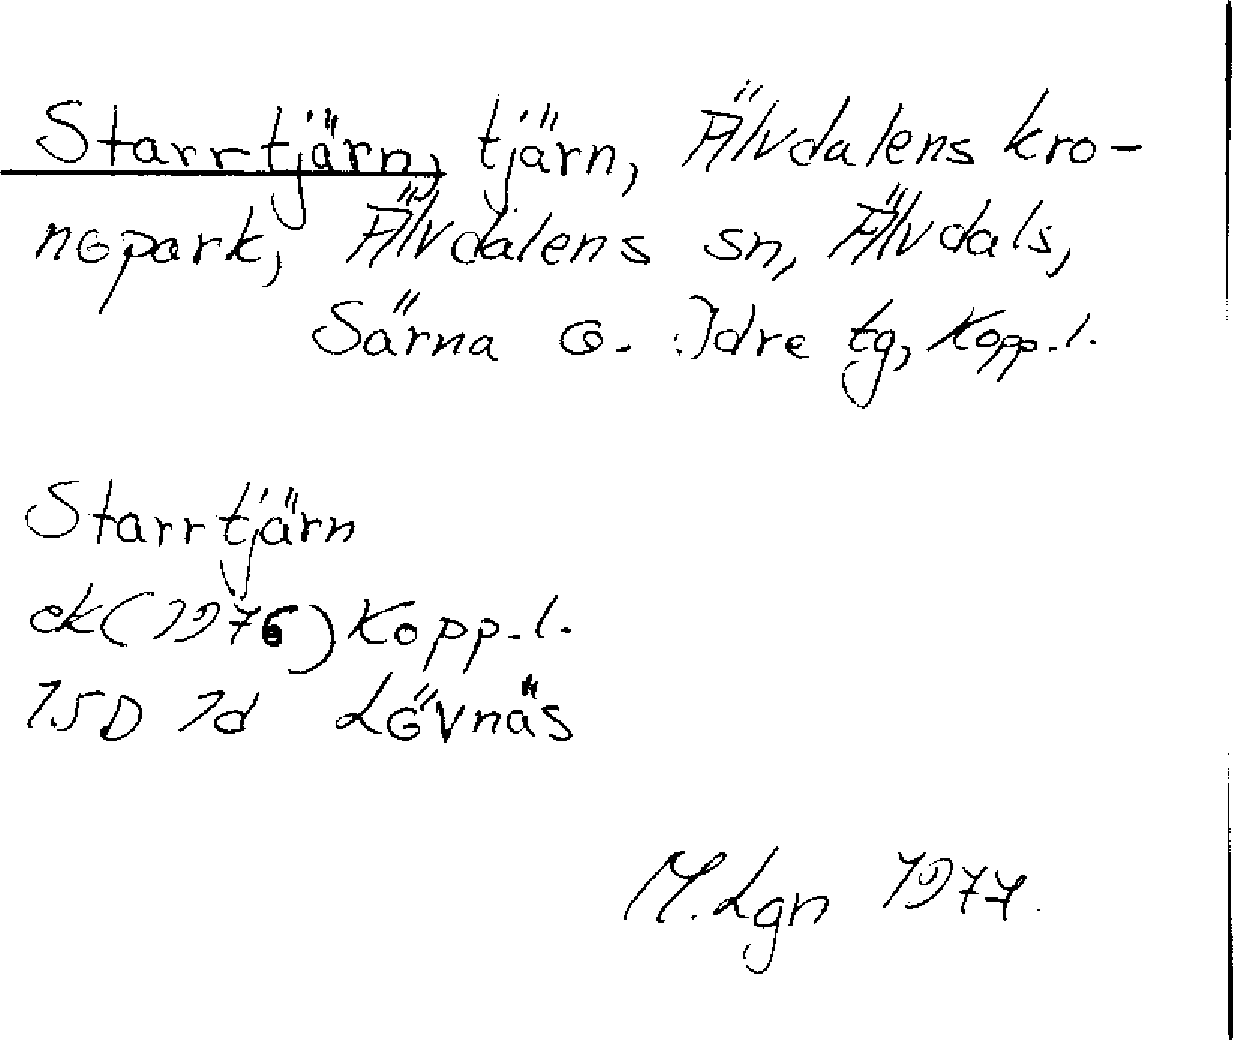 Starrtjärn, tjärn, Älvdalens kro-
nopark, Älvdalens sn, Älvdals,
Särna o. Idre tg, Kopp. l.
Starrtjärn
ek (1976) Kopp. l.
15D 1d Lövnäs
M. Lgn 1977.